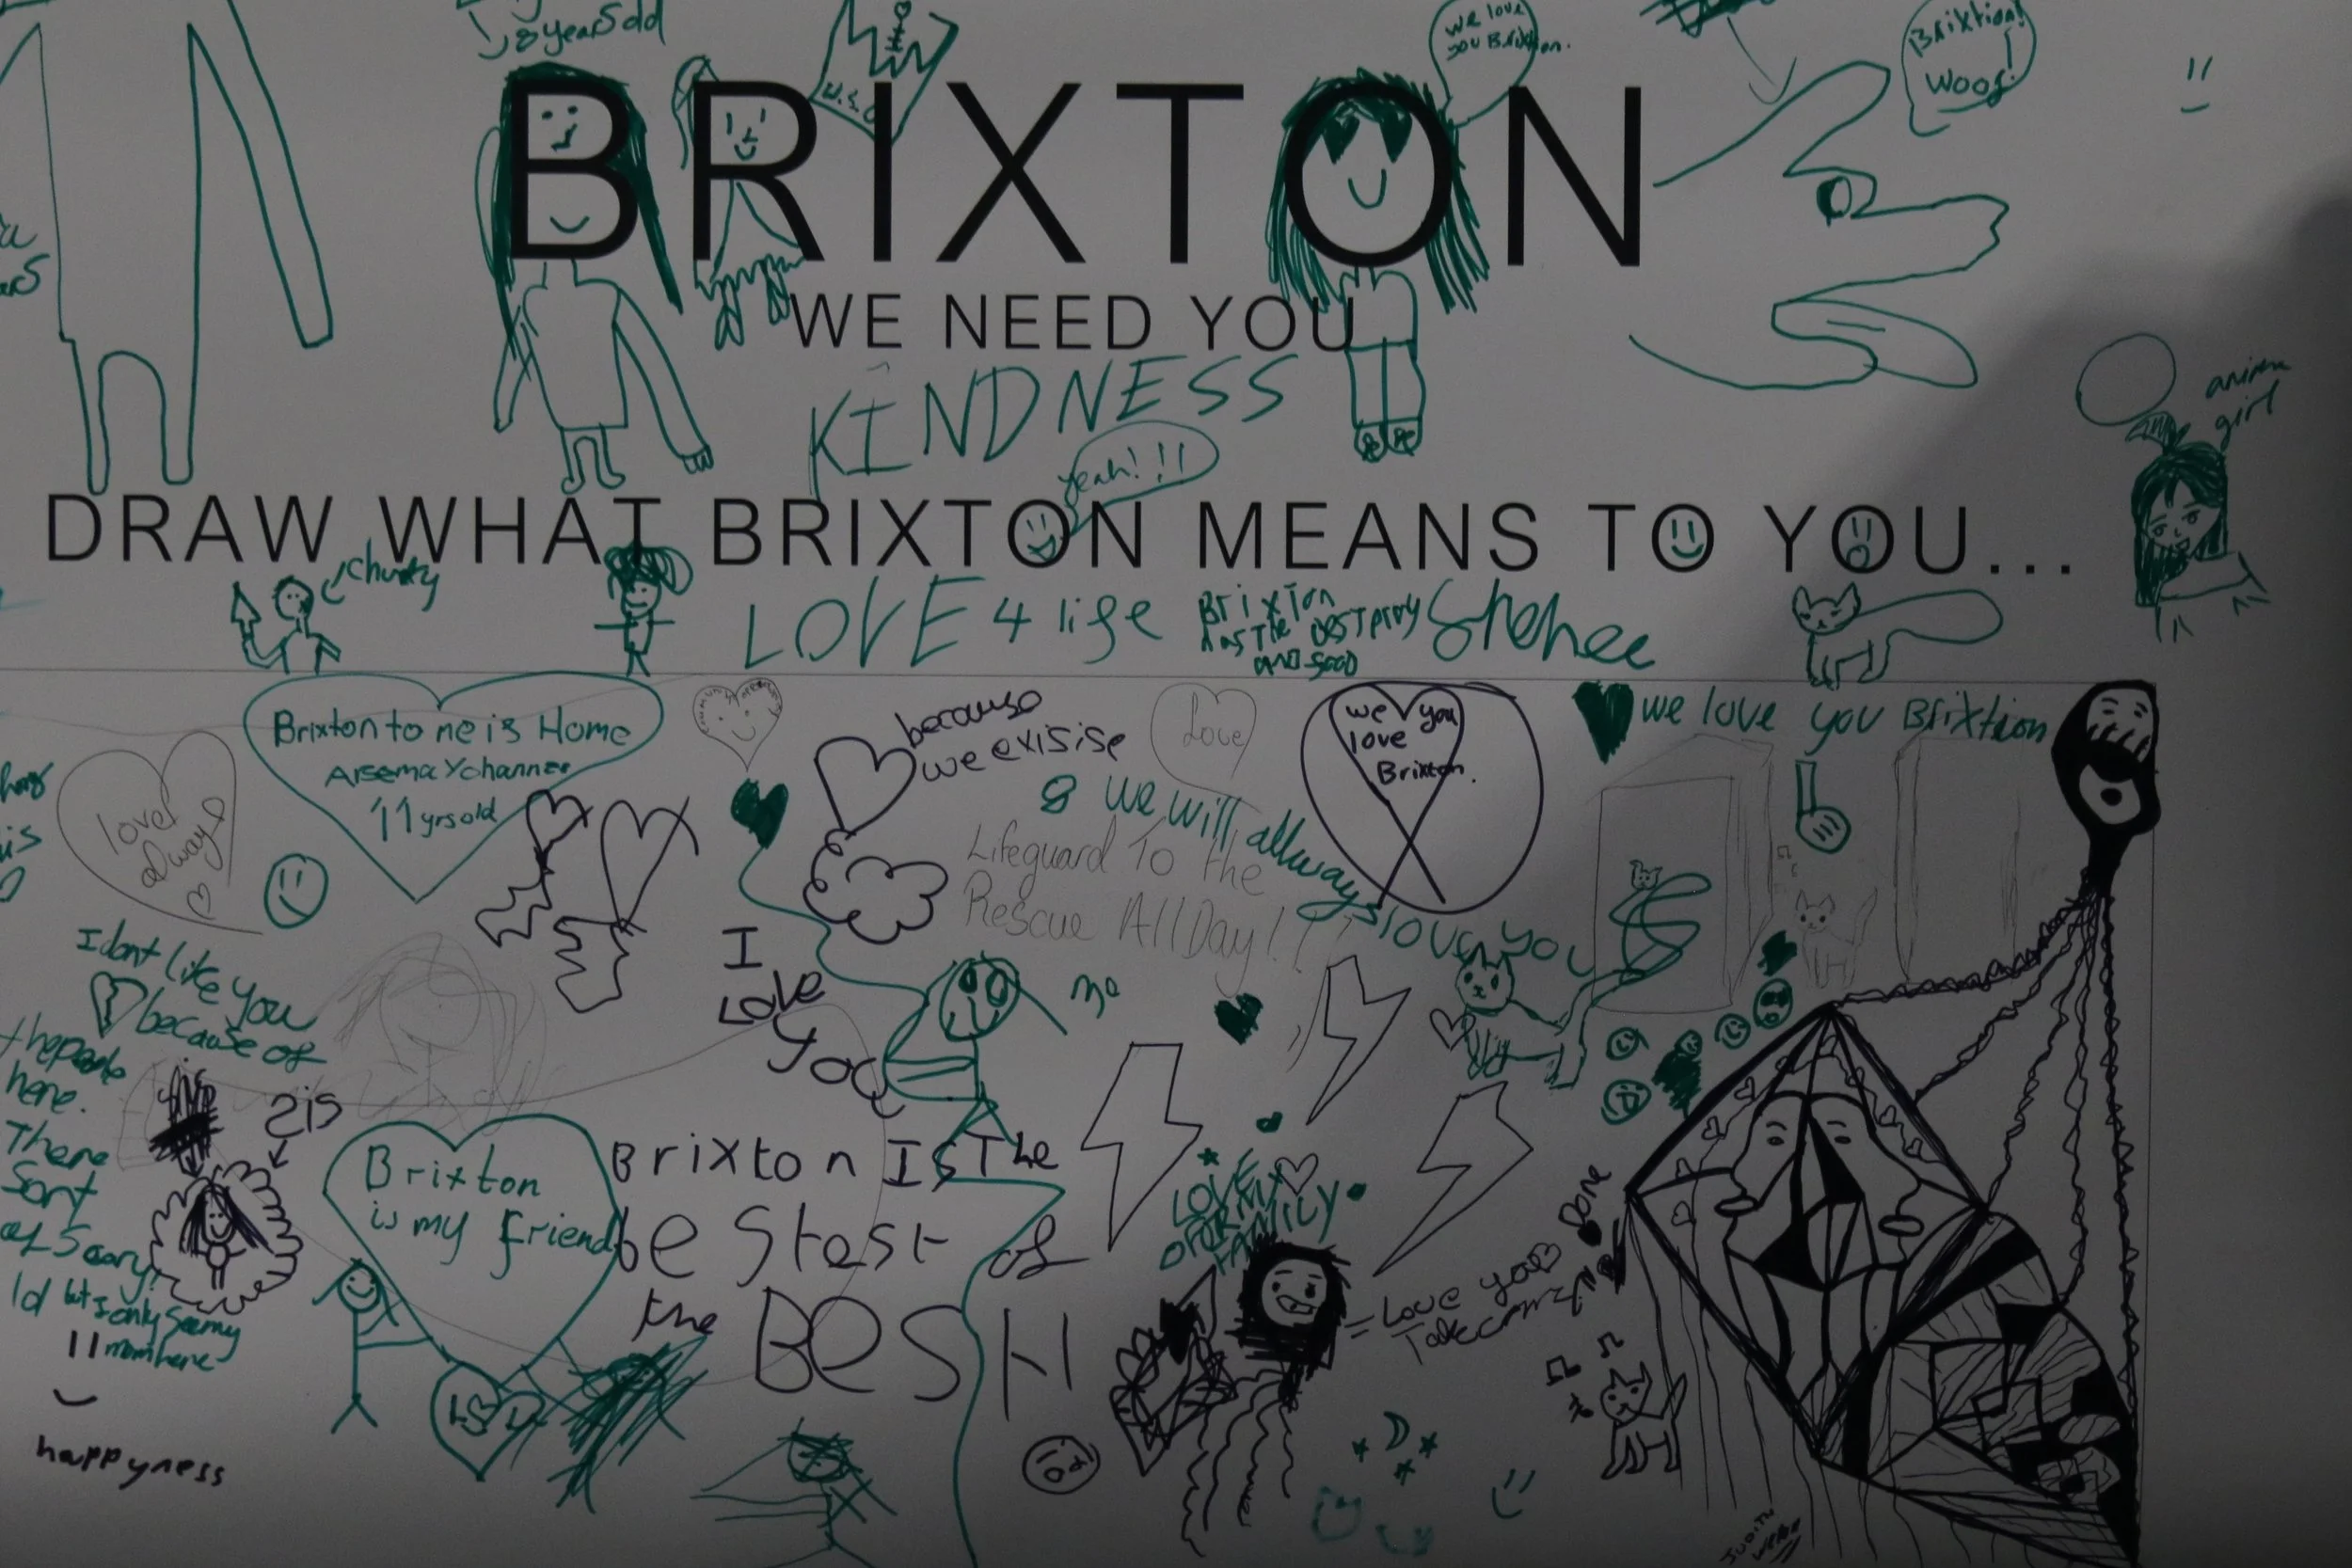 8 years old
we love
you Brixton.
Brixtion!
Woof!
BRIXTON
WE NEED YOU
KINDNESS
yeah!!!
anime
girl
DRAW WHAT BRIXTON MEANS TO YOU...
chucky
LOVE 4 life
Brixton
has the best
and good
Brixton to me is Home
Arsema Yohannes
11 yrs old
because
we exisise
Love
we you
love
Brixton.
we love you Brixtion
love
always
& we will allways love you
Lifeguard To the
Rescue All Day!!
I
Love
you
me
I dont like you
because of
the people
here.
There
Sort
of Scary!
but I only see my
mom here
sis
Brixton
is my friend
Brixton Is The
be Stest of
the BESt
LOVELY
FAMILY
= Love you
Take care
Done
happyness
JUDITH